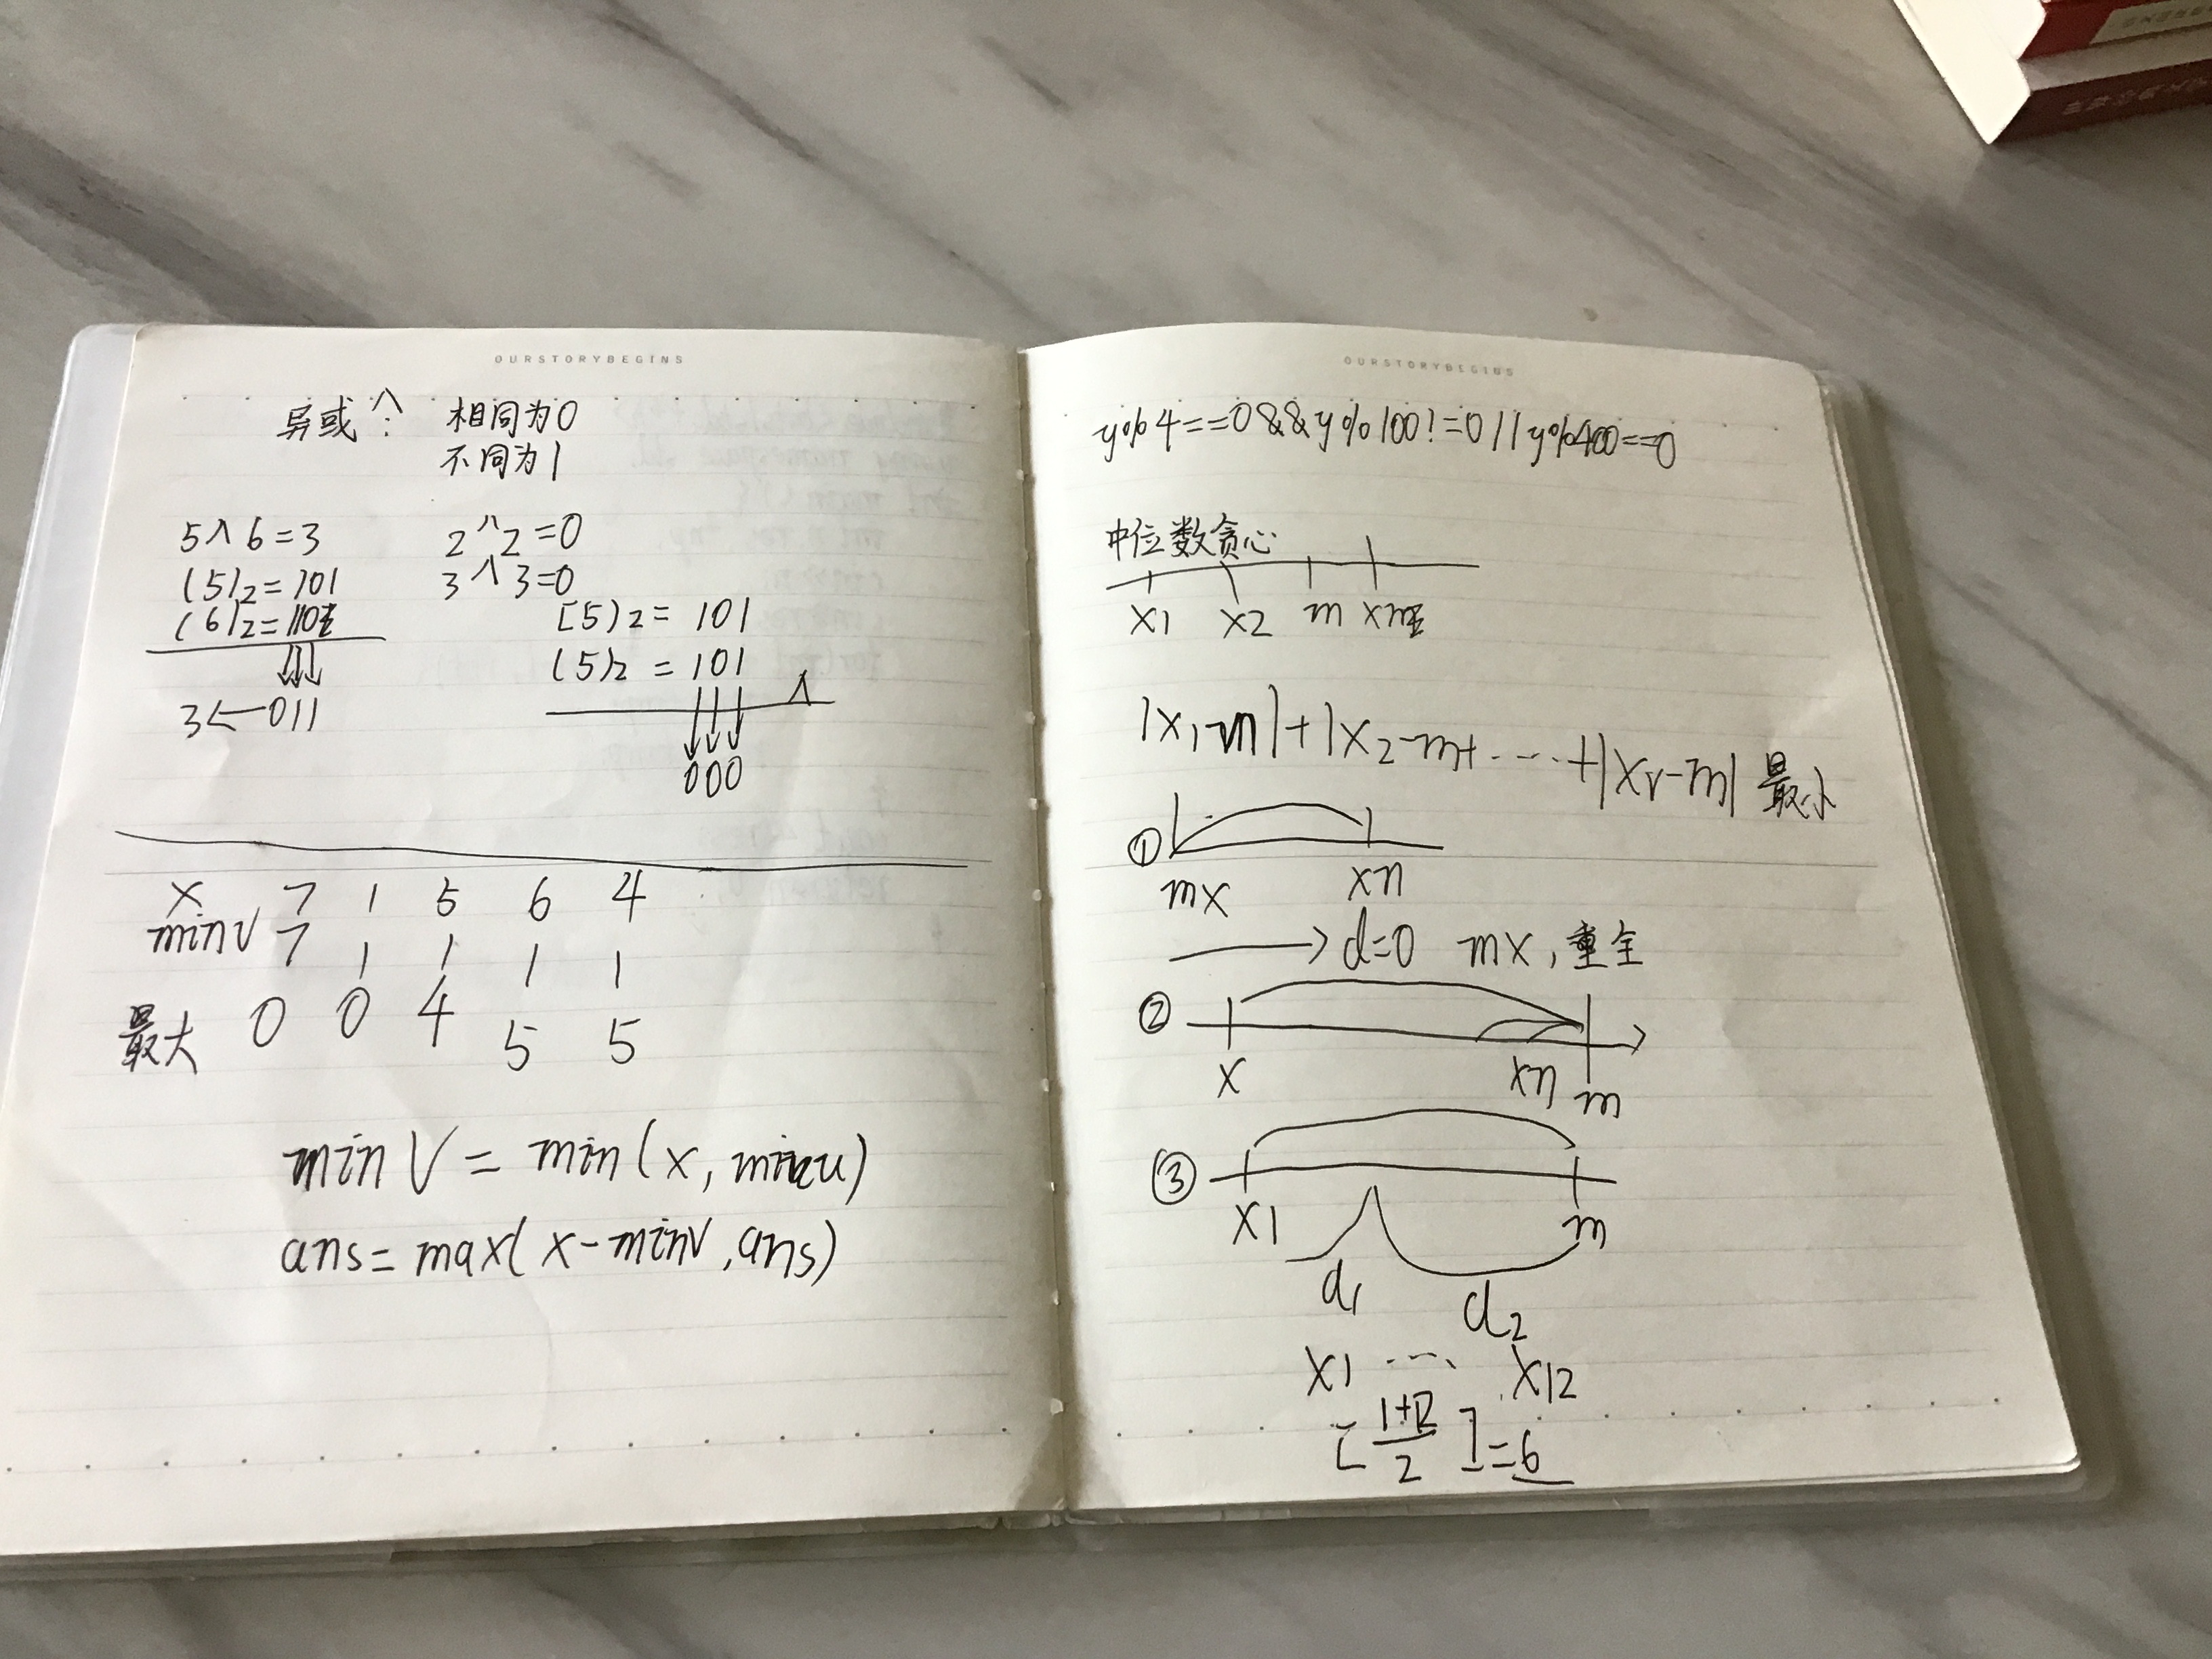 OURSTORYBEGINS
异或^: 相同为0
不同为1
5^6=3 2^2=0
(5)2=101 3^3=0
(6)2=110
3←011
[5)2=101
(5)2=101
^
000
x 7 1 5 6 4
minV 7 1 1 1 1
最大 0 0 4 5 5
minV=min(x,minu)
ans=max(x-minV,ans)
OURSTORYBEGINS
y%4==0&&y%100!=0||y%400==0
中位数贪心
x1 x2 m
|x1-m|+|x2-m+.....+|xr-m|最小
① mx xn
→d=0 mx,重全
② x xn m
③ x1 m
d1 d2
x1 .... x12
[(1+12)/2]=6